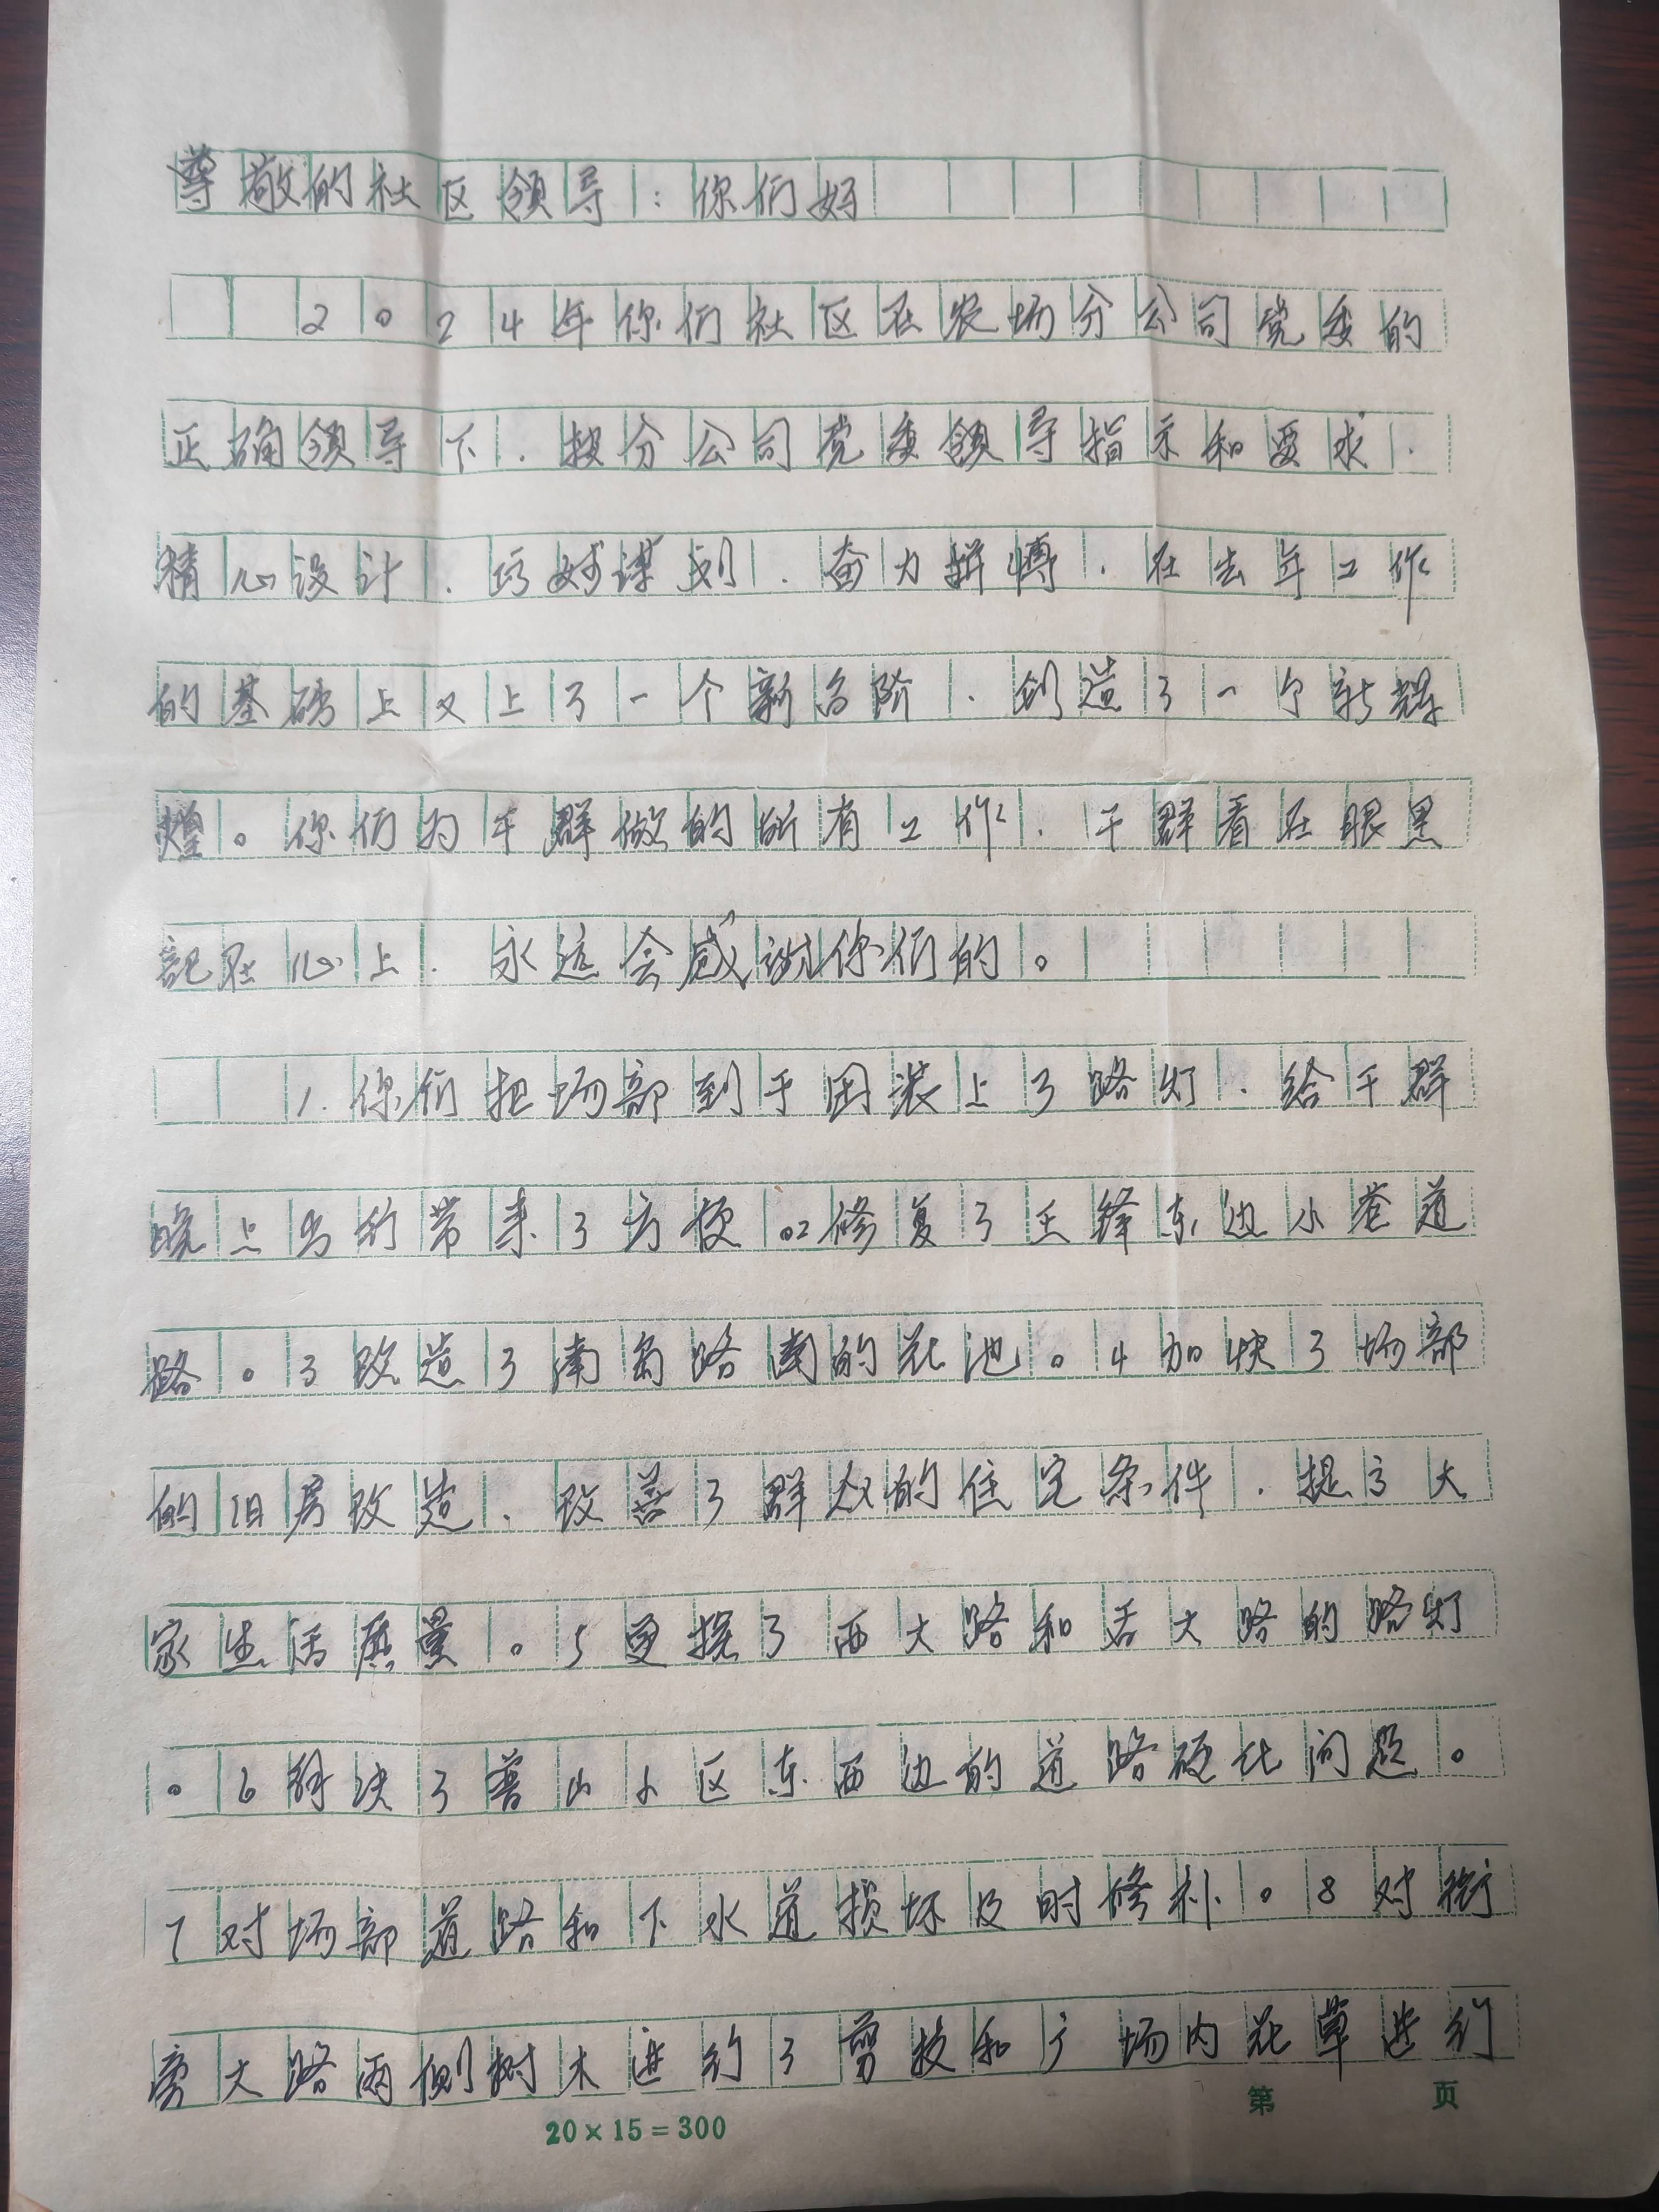 尊敬的社区领导：你们好
2024年你们社区在农场分公司党委的
正确领导下.按分公司党委领导指示和要求.
精心设计.巧妙谋划.奋力拼博.在去年工作
的基础上又上了一个新台阶.创造了一个新辉
煌。你们为干群做的所有工作.干群看在眼里
記在心上.永远会感谢你们的。
1.你们把场部到于困装上了路灯.给干群
晚上出行带来了方便。2修复了王锋东边小巷道
路。3改造了南岛路南的花池。4加快了场部
的旧房改造.改善了群众的住宅条件.提高大
家生活质量。5更换了西大路和舌大路的路灯
。6解决了普山小区东西边的道路硬化问题。
7对场部道路和下水道损坏及时修补。8对衔
旁大路两侧树木进行了剪枝和广场内花草进行
20×15=300
第 页